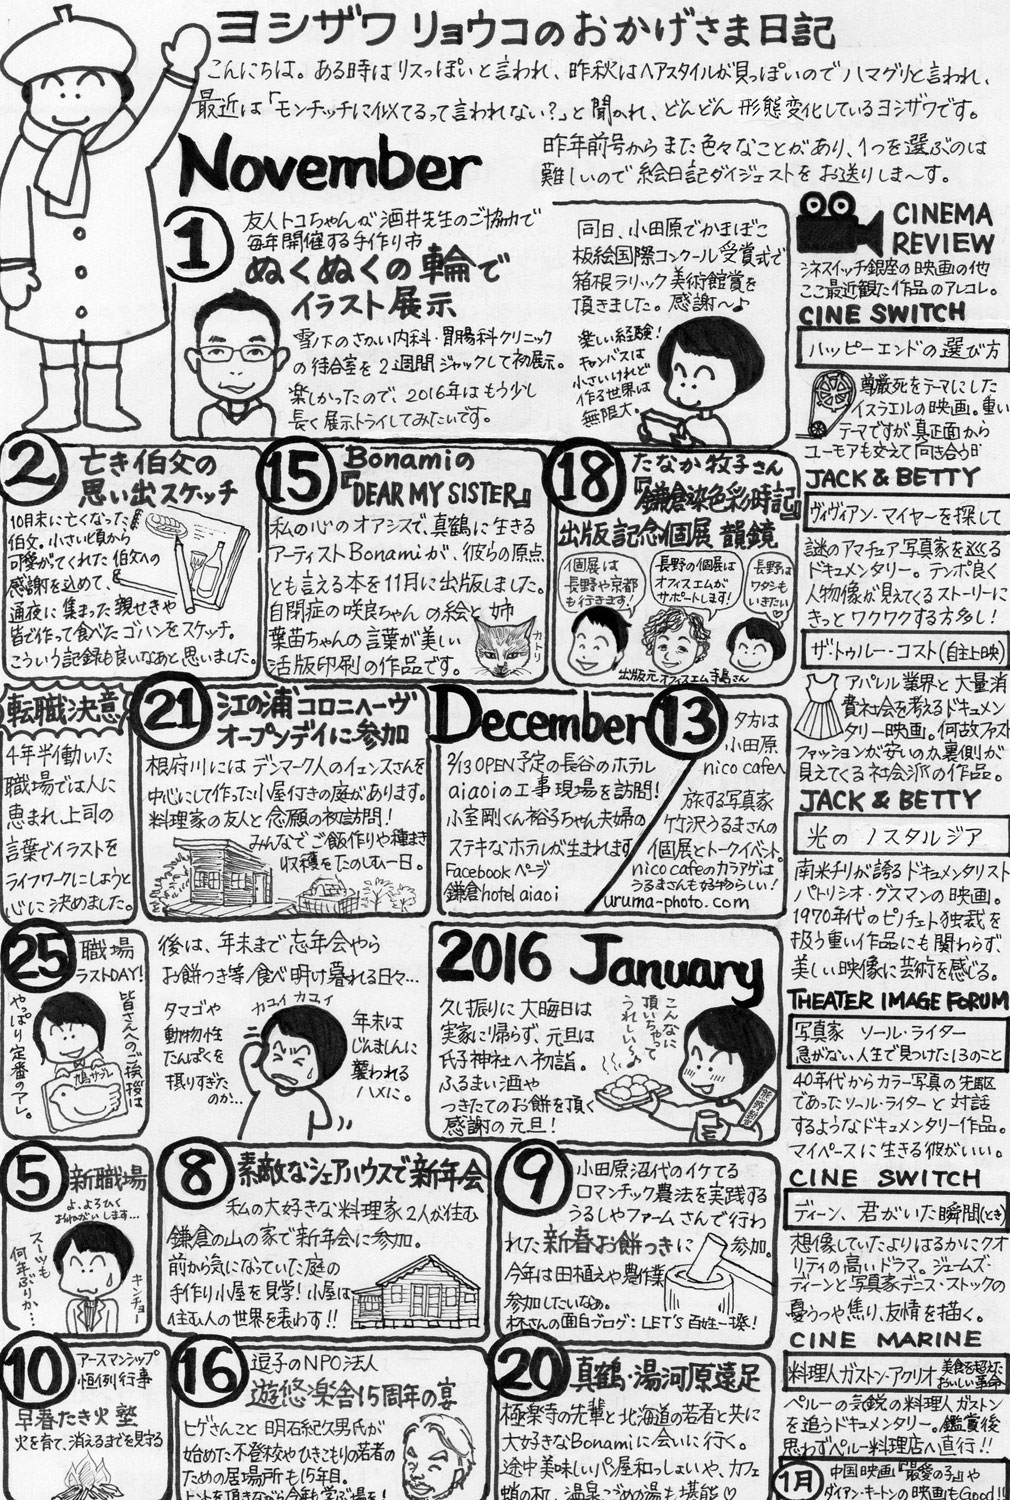 ヨシザワリョウコのおかげさま日記
こんにちは。ある時はリスっぽいと言われ、昨秋はヘアスタイルが貝っぽいのでハマグリと言われ、
最近は「モンチッチに似てるって言われない?」と聞かれ、どんどん形態変化しているヨシザワです。
昨年前号からまた色々なことがあり、1つを選ぶのは
難しいので絵日記ダイジェストをお送りしま~す。
November
1
友人トコちゃんが酒井先生のご協力で
毎年開催する手作り市
ぬくぬくの輪で
イラスト展示
雪ノ下のさかい内科・胃腸科クリニック
の待合室を2週間ジャックして初展示。
楽しかったので、2016年はもう少し
長く展示トライしてみたいです。
同日、小田原でかまぼこ
板絵国際コンクール受賞式で
箱根ラリック美術館賞を
頂きました。感謝~♪
楽しい経験!
キャンバスは
小さいけれど
作る世界は
無限大。
2
亡き伯父の
思い出スケッチ
10月末に亡くなった
伯父。小さい頃から
可愛がてくれた伯父への
感謝を込めて、
通夜に集まった親せきや
皆で作って食べたゴハンをスケッチ。
こういう記録も良いなあと思いました。
15
Bonamiの
『DEAR MY SISTER』
私の心のオアシスで、真鶴に生きる
アーティストBonamiが、彼らの原点
とも言える本を11月に出版しました。
自閉症の咲良ちゃんの絵と姉
葉苗ちゃんの言葉が美しい
活版印刷の作品です。
カトリ
18
たなか牧子さん
『鎌倉染色彩時記』
出版記念個展 韻鏡
個展は
長野や京都
も行きます!
長野の個展は
オフィスエムが
サポートします!
長野は
ワタシも
いきたい♡
出版元オフィスエム寺島さん
転職決意
4年半働いた
職場では人に
恵まれ、上司の
言葉でイラストを
ライフワークにしようと
心に決めました。
21
江の浦コロニヘーヴ
オープンデイに参加
根府川にはデンマーク人のイェンスさんを
中心にして作った小屋付きの庭があります。
料理家の友人と念願の初訪問!
みんなでご飯作りや種まき
収穫をたのしむ一日。
December
2/13 OPEN予定の長谷のホテル
aiaoiの工事現場を訪問!
小室剛くん裕子ちゃん夫婦の
ステキなホテルが生まれます
Facebookページ
鎌倉hotel aiaoi
13
夕方は
小田原
nico cafeへ
旅する写真家
竹沢うるまさんの
個展とトークイベント。
nico cafeのカラアゲは
うるまさんも好物らしい!
uruma-photo.com
25
職場
ラストDAY!
皆さんへのご挨拶は
やっぱり定番のアレ。
鳩サブレー
後は、年末まで忘年会やら
お餅つき等食べ明け暮れる日々…
タマゴや
動物性
たんぱくを
摂りすぎた
のか…
カユイ カユイ
年末は
じんましんに
襲われる
ハメに。
2016 January
久し振りに大晦日は
実家に帰らず、元旦は
氏子神社へ初詣。
ふるまい酒や
つきたてのお餅を頂く
感謝の元旦!
こんなに
頂いちゃって
うれしい~♪
5
新職場
よ、よろしく
おねがいします…
スーツも
何年ぶりか…
キンチョー
8
素敵なシェアハウスで新年会
私の大好きな料理家2人が住む
鎌倉の山の家で新年会に参加。
前から気になっていた庭の
手作り小屋を見学!小屋は
住む人の世界を表わす!!
9
小田原沼代のイケてる
ロマンチック農法を実践する
うるしやファームさんで行わ
れた新春お餅つきに参加。
今年は田植えや農作業
参加したいなぁ。
林さんの面白ブログ:LET'S百姓一揆!
10
アースマンシップ
恒例行事
早春たき火塾
火を育て、消えるまでを見守る
16
逗子のNPO法人
遊悠楽舎15周年の宴
ヒゲさんこと明石紀久男氏が
始めた不登校やひきこもりの若者の
ための居場所も15年目。
ヒントを頂きながら今年も学ぶ場を!
20
真鶴・湯河原遠足
極楽寺の先輩と北海道の若者と共に
大好きなBonamiに会いに行く。
途中美味しいパン屋和っしょいや、カフェ
蛸の枕、温泉ごめの湯も堪能♡
CINEMA
REVIEW
シネスイッチ銀座の映画の他
ここ最近観た作品のアレコレ。
CINE SWITCH
ハッピーエンドの選び方
尊厳死をテーマにした
イスラエルの映画。重い
テーマですが真正面から
ユーモアも交えて向き合う日
JACK & BETTY
ヴィヴィアン・マイヤーを探して
謎のアマチュア写真家をめぐる
ドキュメンタリー。テンポ良く
人物像が見えてくるストーリーに
きっとワクワクする方多し!
ザ・トゥルー・コスト(自主上映)
アパレル業界と大量消
費社会を考えるドキュメン
タリー映画。何故ファスト
ファッションが安いのか裏側が
見えてくる社会派の作品。
JACK & BETTY
光のノスタルジア
南米チリが誇るドキュメンタリスト
パトリシオ・グスマンの映画。
1970年代のピノチェト独裁を
扱う重い作品にも関わらず、
美しい映像に芸術を感じる。
THEATER IMAGE FORUM
写真家 ソール・ライター
急がない人生で見つけた13のこと
40年代からカラー写真の先駆
であったソール・ライターと対話
するようなドキュメンタリー作品。
マイペースに生きる彼がいい。
CINE SWITCH
ディーン、君がいた瞬間(とき)
想像していたよりはるかにクオ
リティの高いドラマ。ジェームズ・
ディーンと写真家デニス・ストックの
憂うつや焦り、友情を描く。
CINE MARINE
料理人ガストン・アクリオ 美食を超えた
おいしい革命
ペルーの気鋭の料理人ガストン
を追うドキュメンタリー。鑑賞後
思わずペルー料理店へ直行!!
1月
中国映画『最愛の子』や
ダイアン・キートンの映画もGood!!